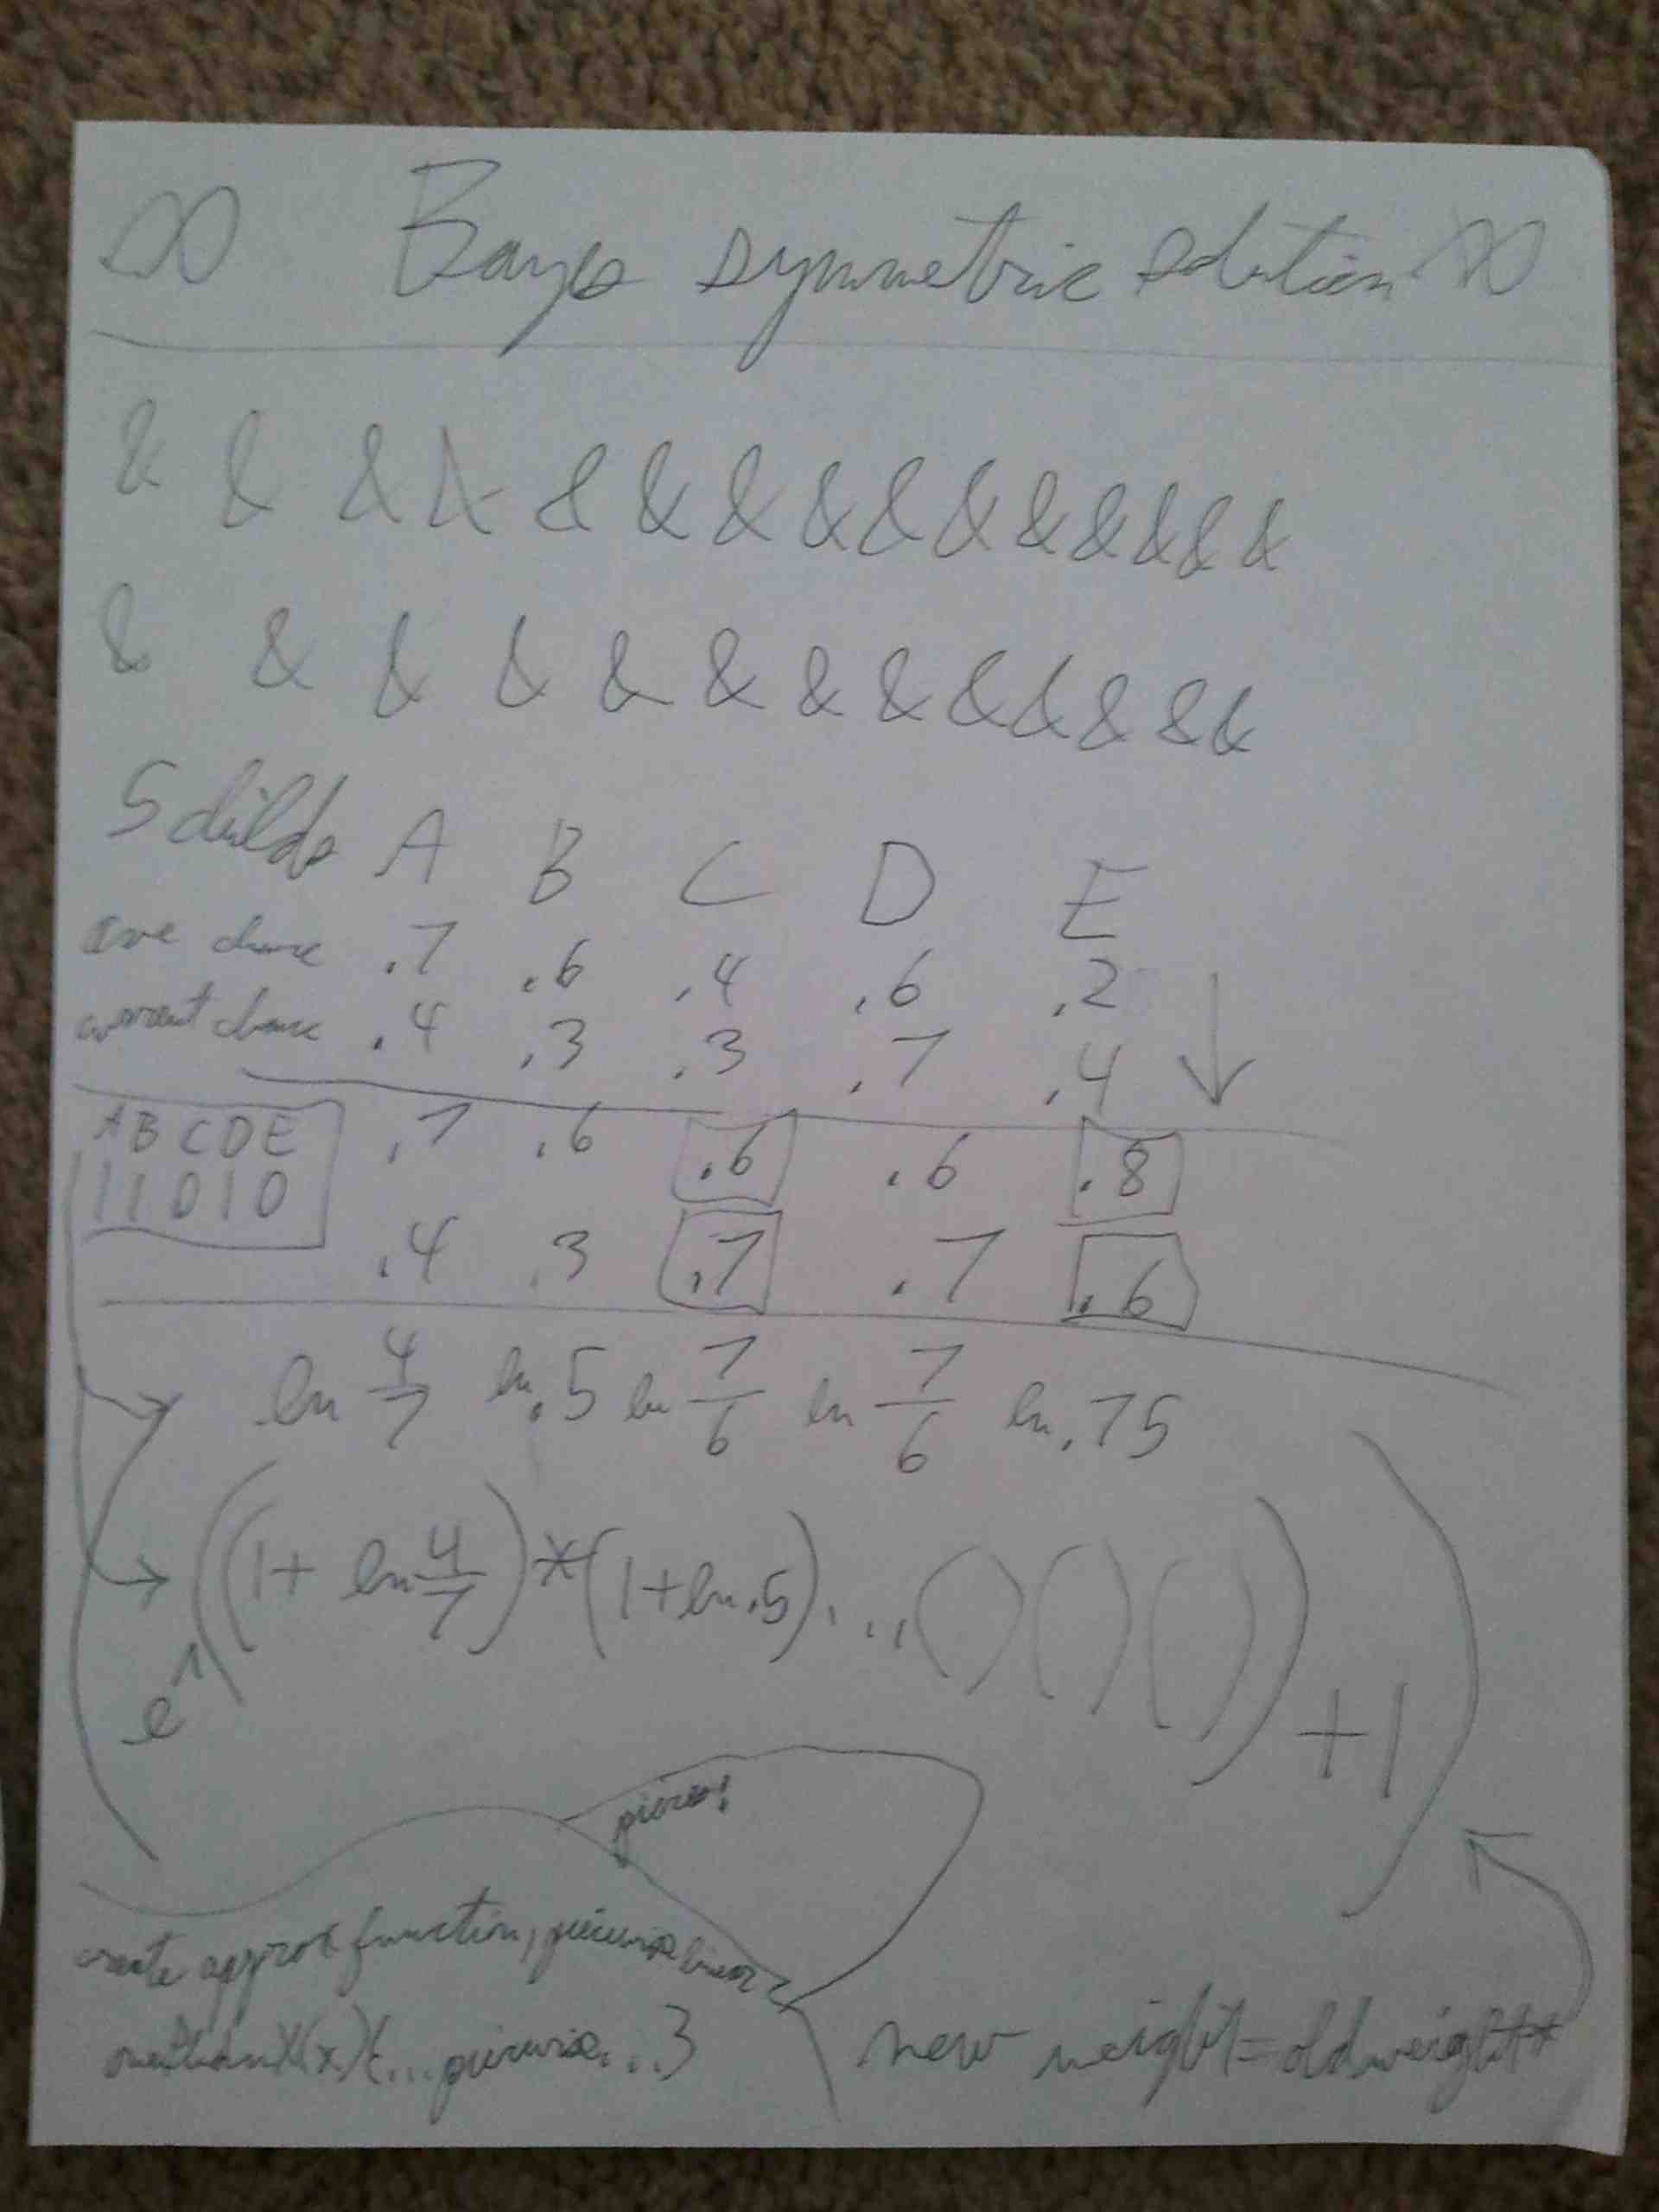 ∞ Bayes symmetric solution ∞
& & & & & & & & & & & & & & &
& & & & & & & & & & & & &
5 childs A B C D E
ave chance .7 .6 .4 .6 .2
current chance .4 .3 .3 .7 .4
ABCDE .7 .6 .6 .6 .8
11010
.4 .3 .7 .7 .6
ln 4/7 ln .5 ln 7/6 ln 7/6 ln .75
e^(((1+ ln 4/7)*(1+ln .5)....()()())+1)
pieces!
create approx function, piecewise linear
methodX(x){...piecewise...}
new weight=oldweight*